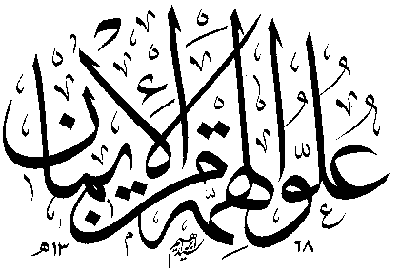 عُلُوُّ الهِمَّةِ مِنَ الإِيمَانِ
١٣ هـ ٦٨